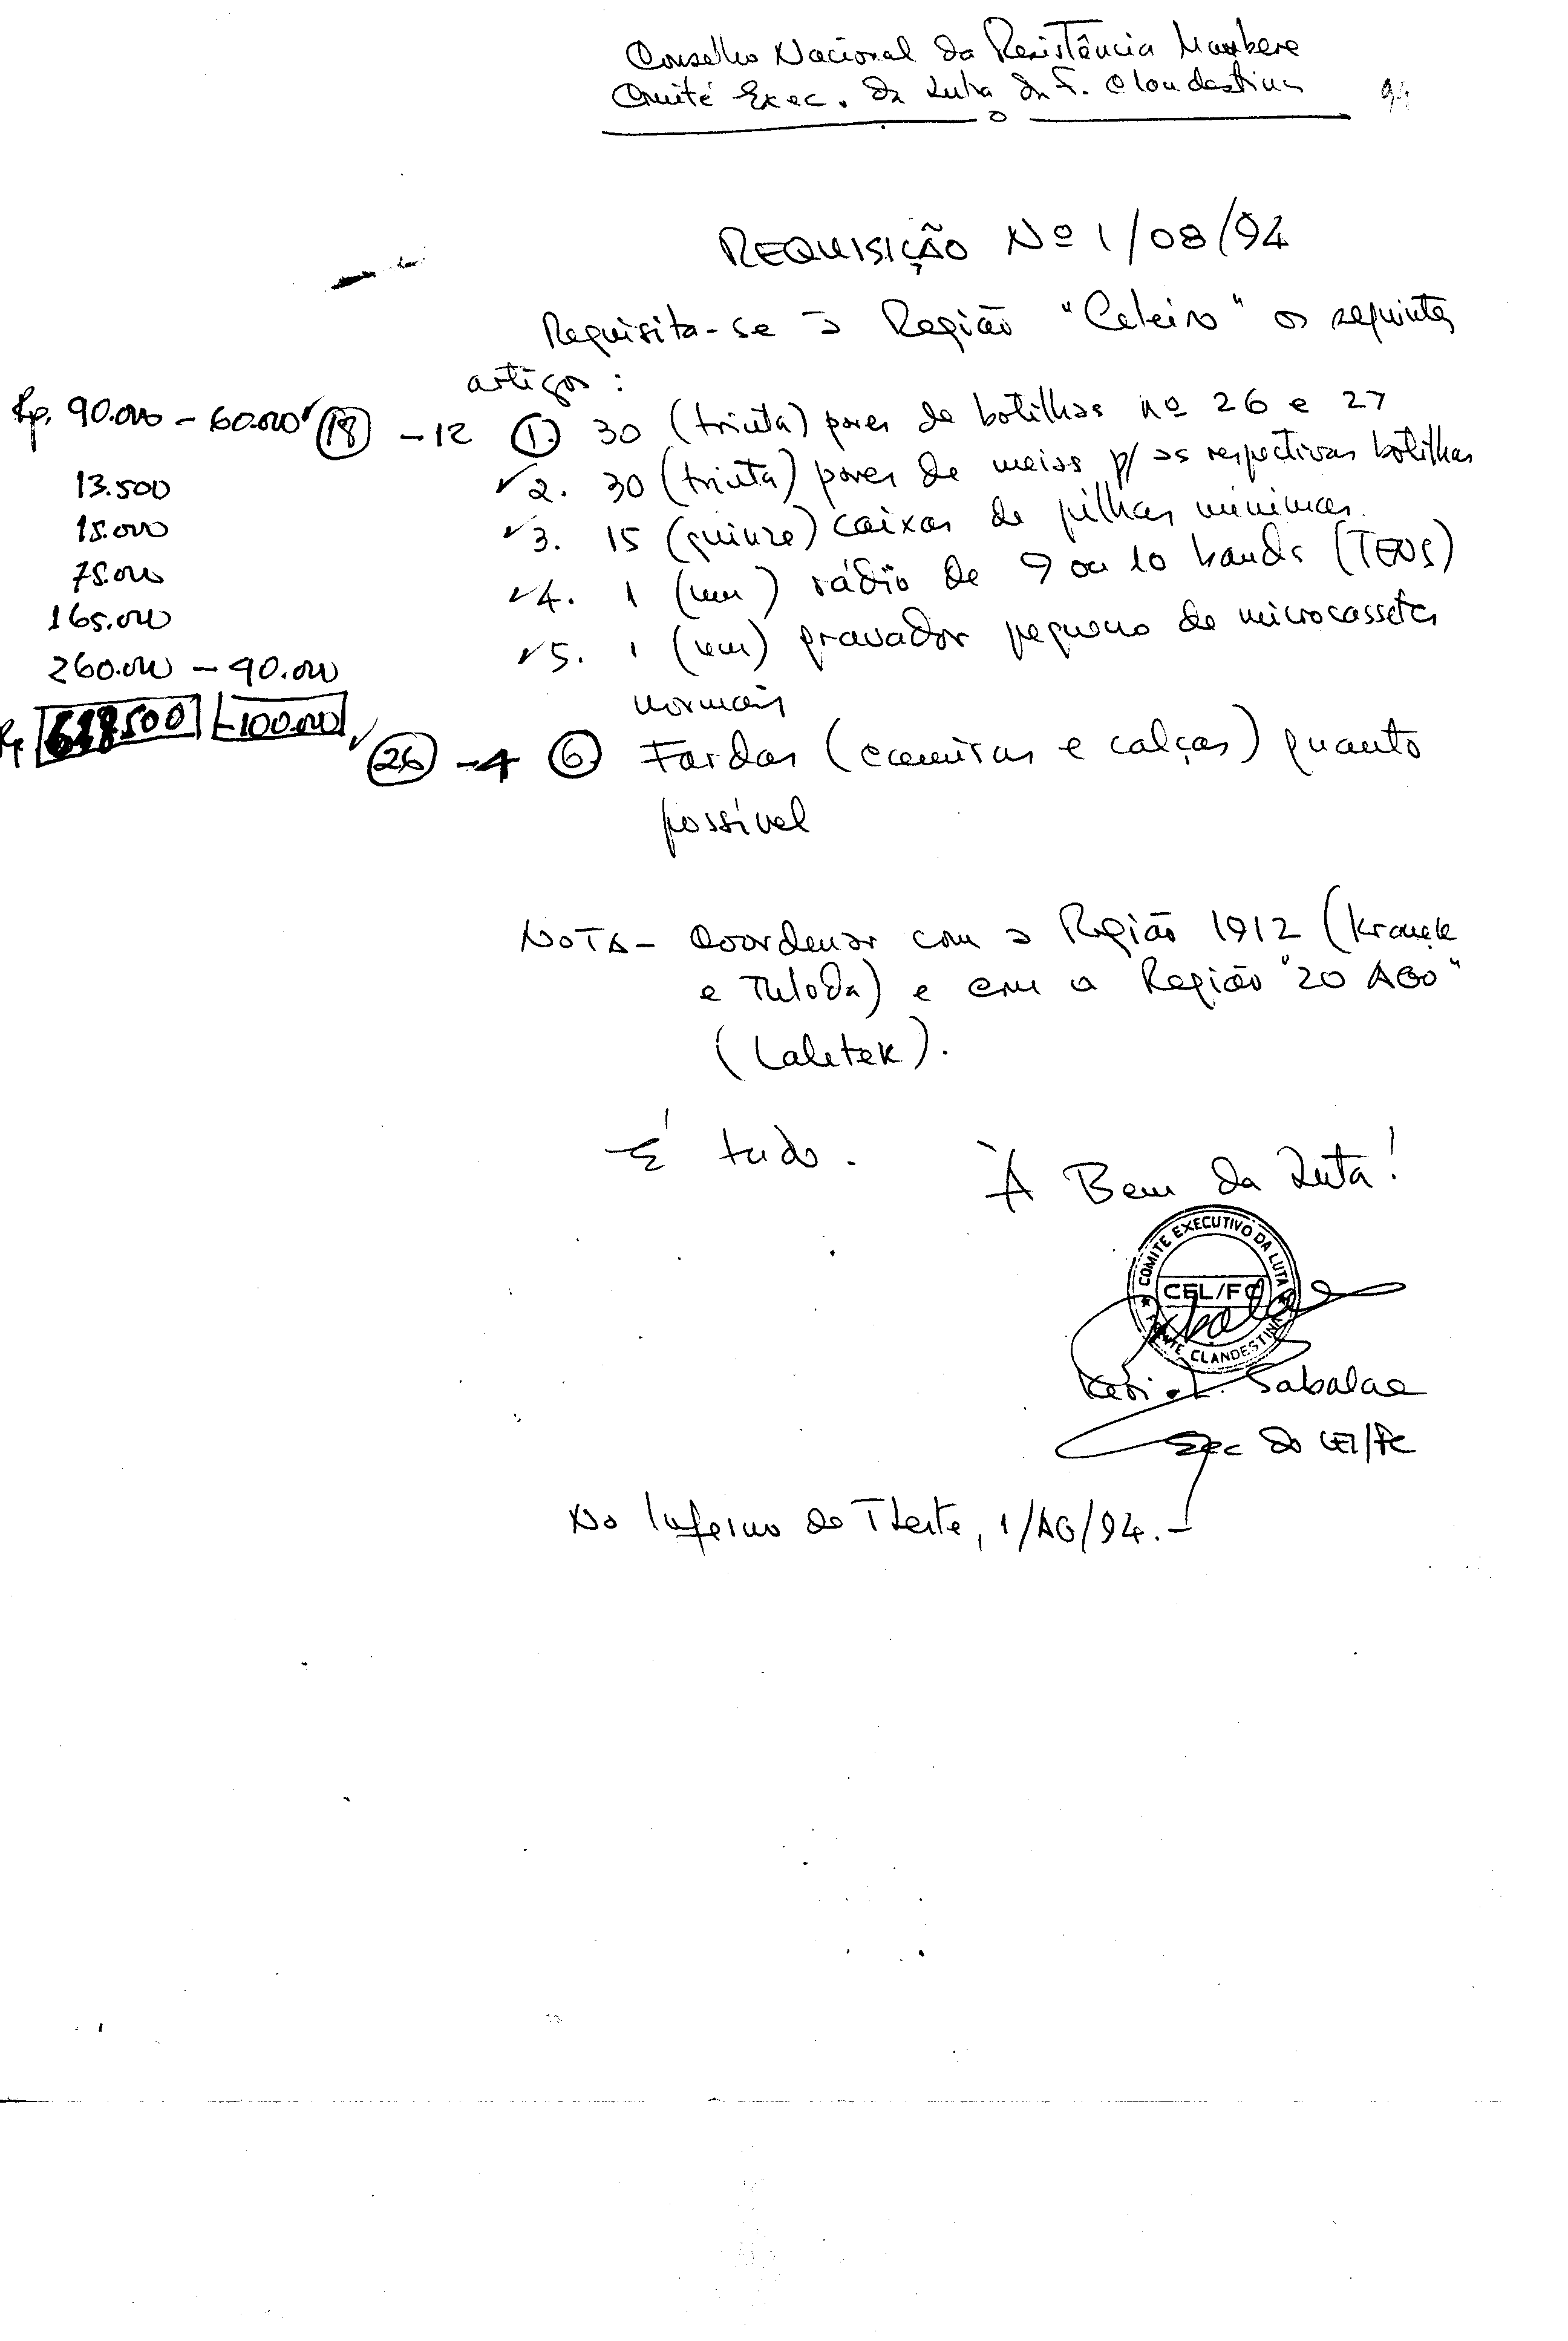 Conselho Nacional da Resistência Maubere
Comité Exec. da Luta da F. Clandestina
94
REQUISIÇÃO Nº 1/08/94
Requisita-se à Região "Celeiro" os seguintes
artigos:
Rp. 90.000 - 60.000 ✓ 18 - 12 1. 30 (trinta) pares de botilhas nº 26 e 27
13.500 ✓2. 30 (trinta) pares de meias p/ as respectivas botilhas
15.000 ✓3. 15 (quinze) caixas de pilhas mínimas.
75.000 ✓4. 1 (um) rádio de 9 ou 10 bands (TENS)
165.000 ✓5. 1 (um) gravador pequeno de microcassetes
260.000 - 40.000 normais
Rp 618.500 -100.000 ✓ 26 - 4 6 Fardas (camisas e calças) quanto
possível
NOTA - Coordenar com a Região 1912 (Kranek
e Tuloda) e com a Região "20 AGO"
(Laletek).
É tudo. À Bem da Luta!
COMITE EXECUTIVO DA LUTA
CEL/FC
FRENTE CLANDESTINA
Keri L. Sabalae
Sec do CEL/FC
No Inferno de TLeste, 1/AG/94.-